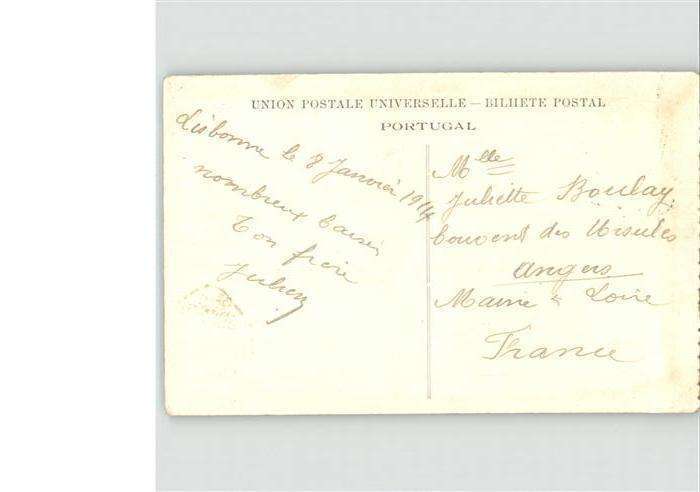 UNION POSTALE UNIVERSELLE — BILHETE POSTAL
PORTUGAL
Lisbonne le 8 Janvier 1914
nombreux baisers
Ton frère
Julien
Mlle
Juliette Boulay
Couvent des Ursules
Angers
Maine & Loire
France